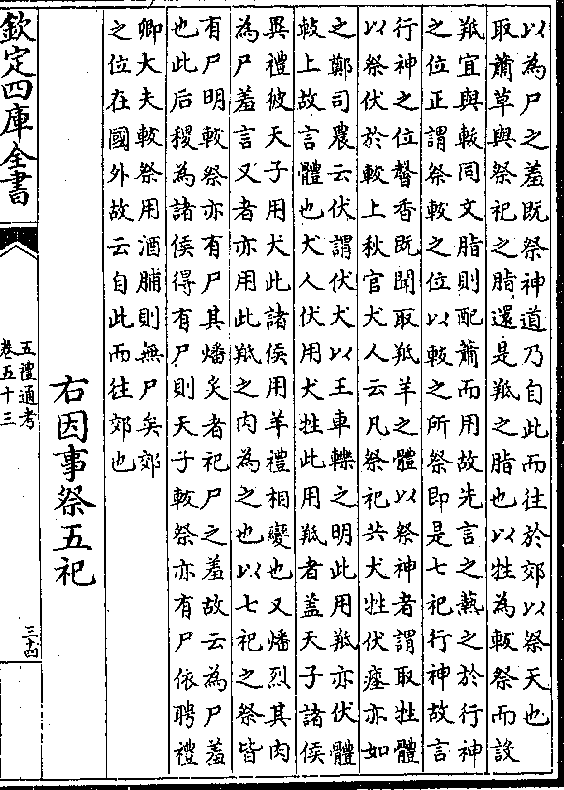 以為尸之羞既祭神道乃自此而往於郊以祭天也
取蕭草與祭祀之脂還是羝之脂也以牲為軷祭而設
羝宜與軷同文脂則配蕭而用故先言之爇之於行神
之位正謂祭軷之位以軷之所祭即是七祀行神故言
行神之位馨香既聞取羝羊之體以祭神者謂取牲體
以祭伏於軷上秋官犬人云凡祭祀共犬牲伏瘞亦如
之鄭司農云伏謂伏犬以王車轢之明此用羝亦伏體
軷上故言體也犬人伏用犬牲此用羝者蓋天子諸侯
異禮彼天子用犬此諸侯用羊禮相變也又燔烈其肉
為尸羞言又者亦用此羝之肉為之也以七祀之祭皆
有尸明軷祭亦有尸其燔炙者祀尸之羞故云為尸羞
也此后稷為諸侯得有尸則天子軷祭亦有尸依聘禮
卿大夫軷祭用酒脯則無尸矣郊
之位在國外故云自此而往郊也
右因事祭五祀
欽定四庫全書
五禮通考
卷五十三
三十四